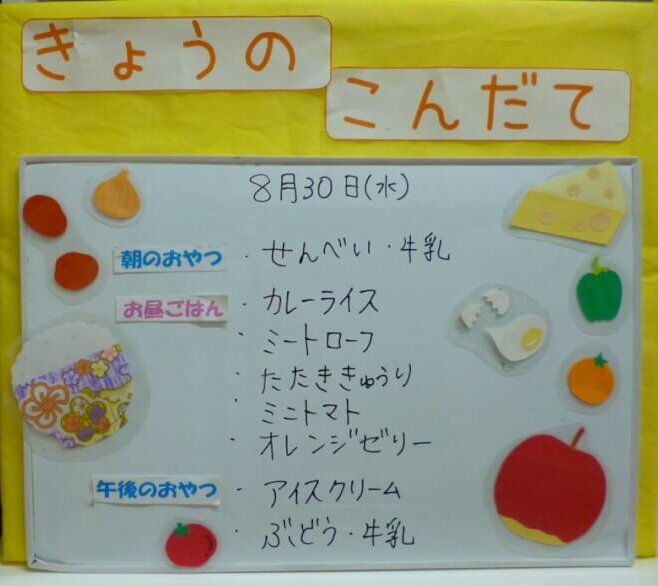 きょうの
こんだて
8月30日(水)
朝のおやつ ・せんべい・牛乳
お昼ごはん ・カレーライス
・ミートローフ
・たたききゅうり
・ミニトマト
・オレンジゼリー
午後のおやつ ・アイスクリーム
・ぶどう・牛乳